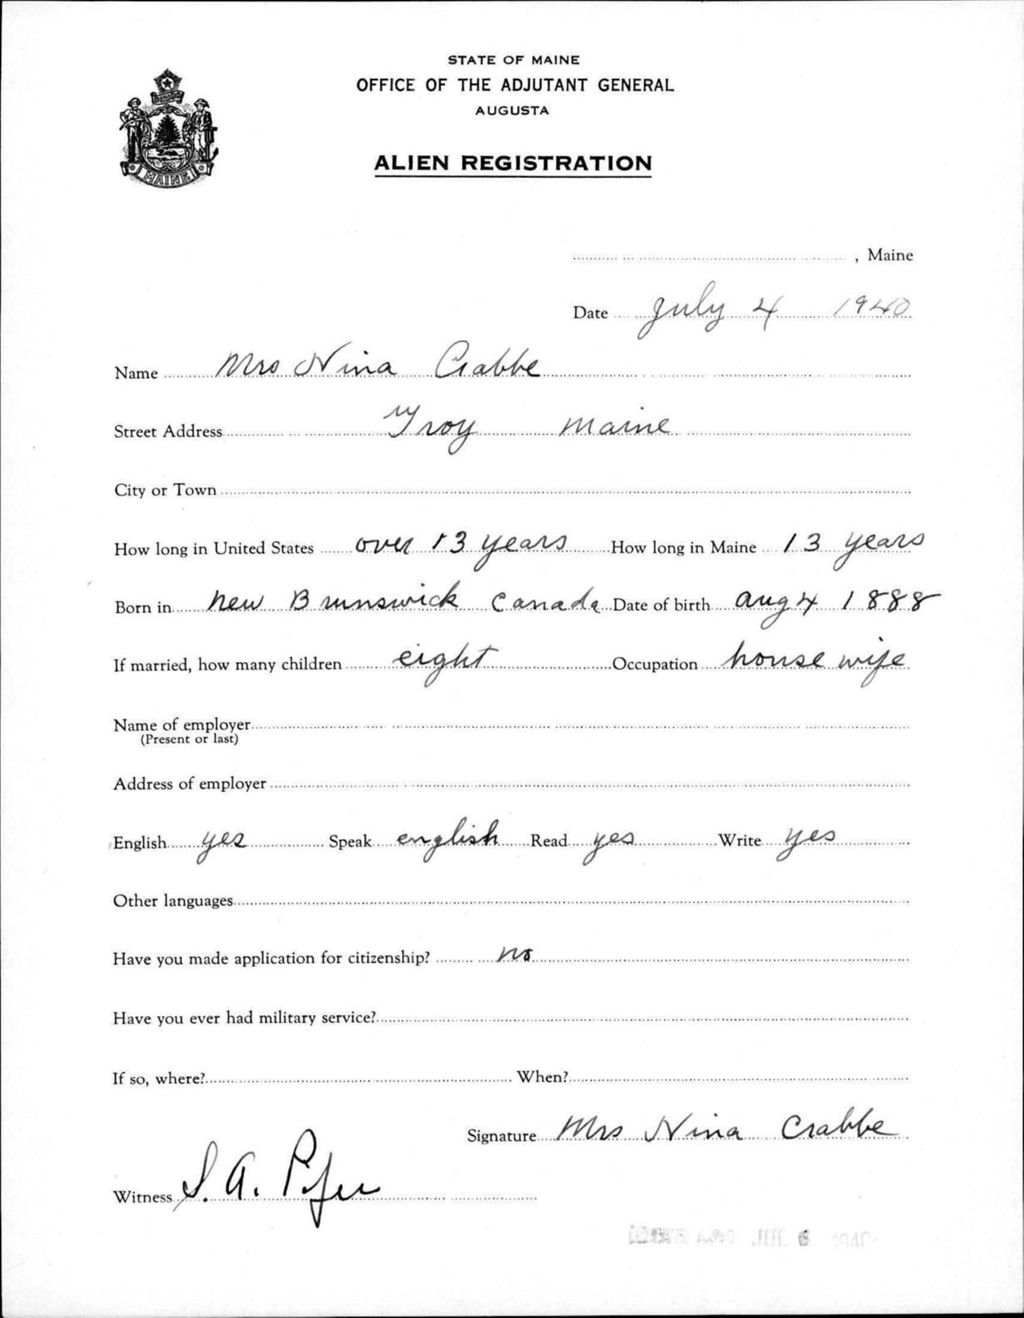 STATE OF MAINE
OFFICE OF THE ADJUTANT GENERAL
AUGUSTA
ALIEN REGISTRATION
MAINE
, Maine
Date July 4 1940
Name Mrs Nina Crabbe
Street Address Troy Maine
City or Town
How long in United States over 13 years How long in Maine 13 years
Born in new Brunswick Canada Date of birth aug 4 1888
If married, how many children eight Occupation house wife
Name of employer
(Present or last)
Address of employer
English yes Speak english Read yes Write yes
Other languages
Have you made application for citizenship? no
Have you ever had military service?
If so, where? When?
Signature Mrs Nina Crabbe
Witness S. A.